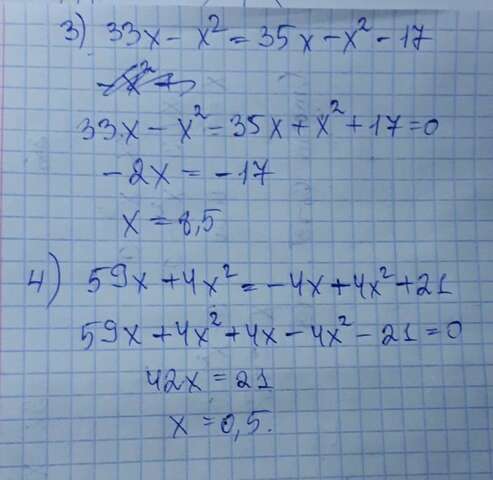 3) 33x - x² = 35x - x² - 17
33x - x² = 35x + x² + 17 = 0
-2x = -17
x = 8,5
4) 59x + 4x² = -4x + 4x² + 21
59x + 4x² + 4x - 4x² - 21 = 0
42x = 21
x = 0,5.